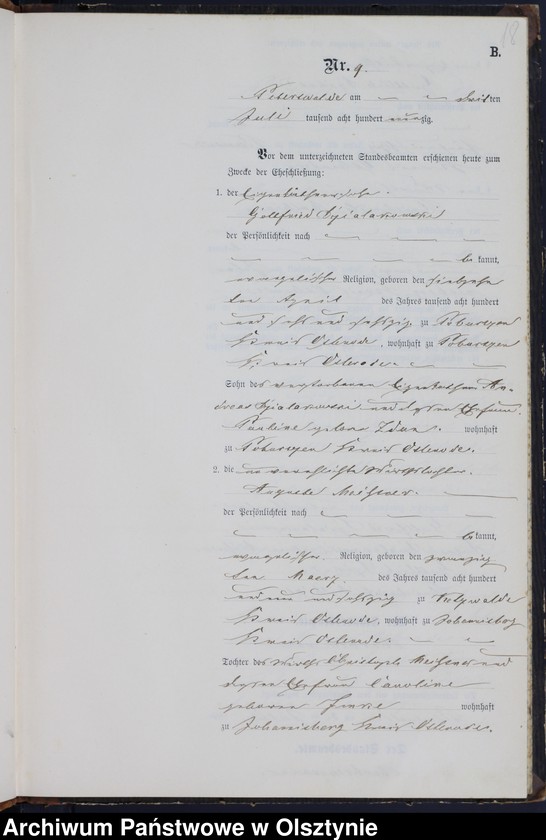 18
B.
Nr. 9.
Peterswalde am dritten
Juli tausend acht hundert neunzig.
Vor dem unterzeichneten Standesbeamten erschienen heute zum
Zwecke der Eheschließung:
1. der
Gottfried
der Persönlichkeit nach
be kannt,
evangelischer Religion, geboren den siebzehn
ten April des Jahres tausend acht hundert
und sechs und sechszig, zu
Kreis Osterode, wohnhaft zu
Kreis Osterode.
Sohn des verstorbenen Eigenkäthner An-
dreas und dessen Ehefrau
Pauline geborne wohnhaft
zu Kreis Osterode.
2. die unverehelichte Wirthstochter
Auguste Meissner.
der Persönlichkeit nach
be kannt,
evangelischer Religion, geboren den zwanzig
ten Maerz des Jahres tausend acht hundert
neun und sechszig zu
Kreis Osterode, wohnhaft zu Johannisberg
Kreis Osterode.
Tochter des Wirths Christoph Meissner und
dessen Ehefrau Caroline
geborenen wohnhaft
zu Johannisberg Kreis Osterode.
Archiwum Państwowe w Olsztynie